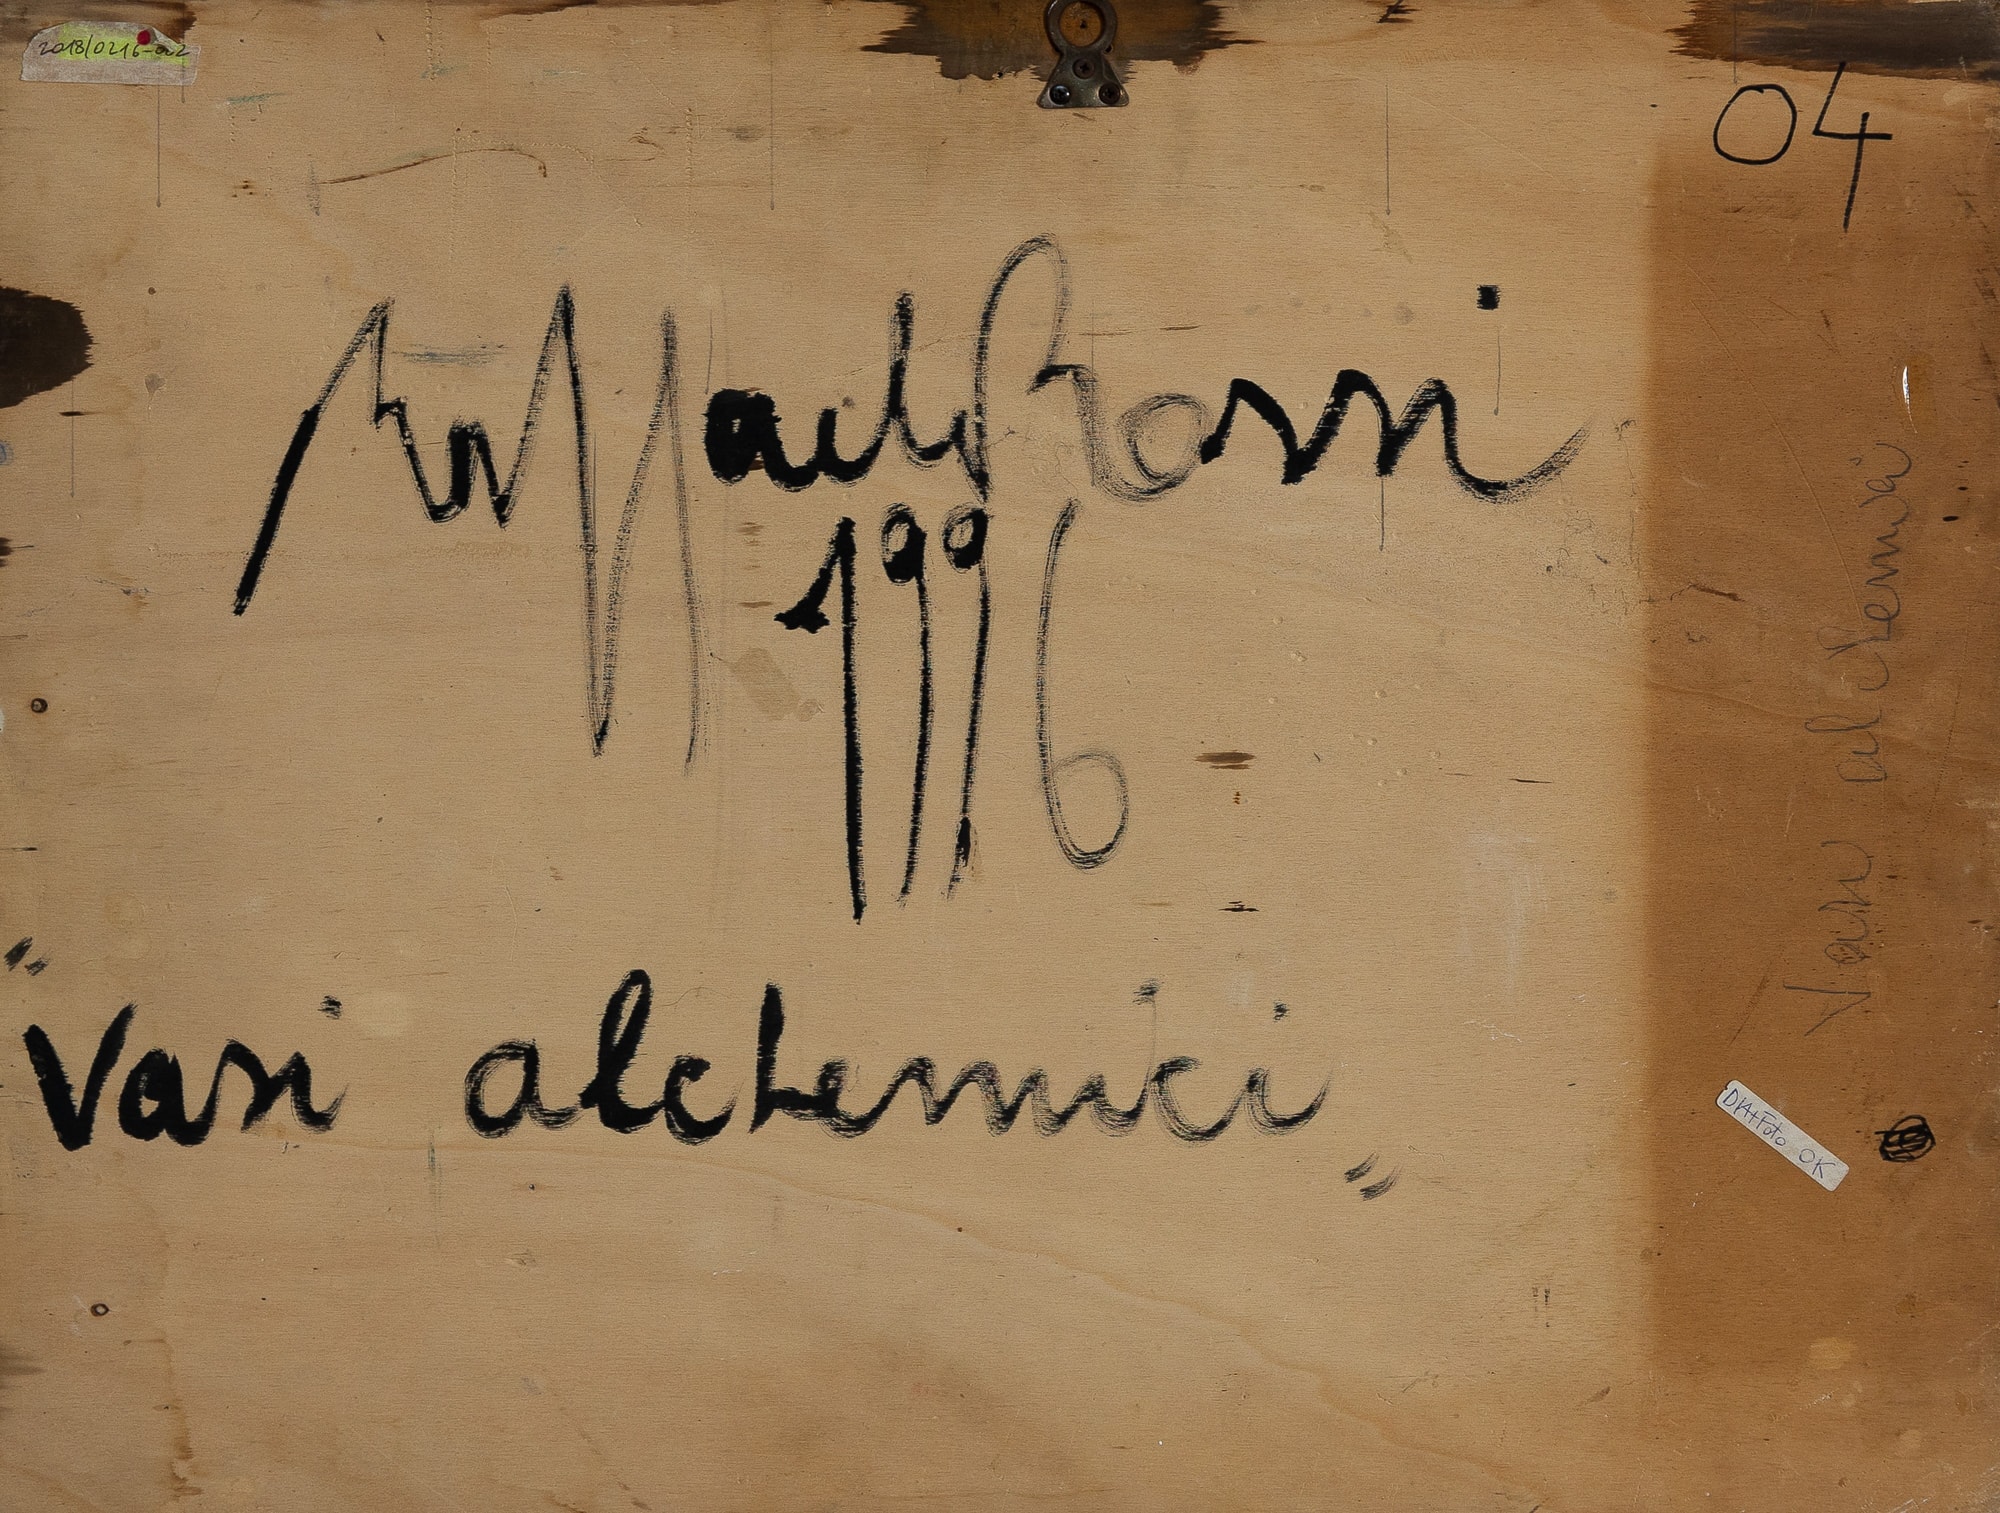 2018/0216-002
04
Raffaele Rossi
1996
"Vasi alchemici"
Vasi alchemici
DIA+Foto OK